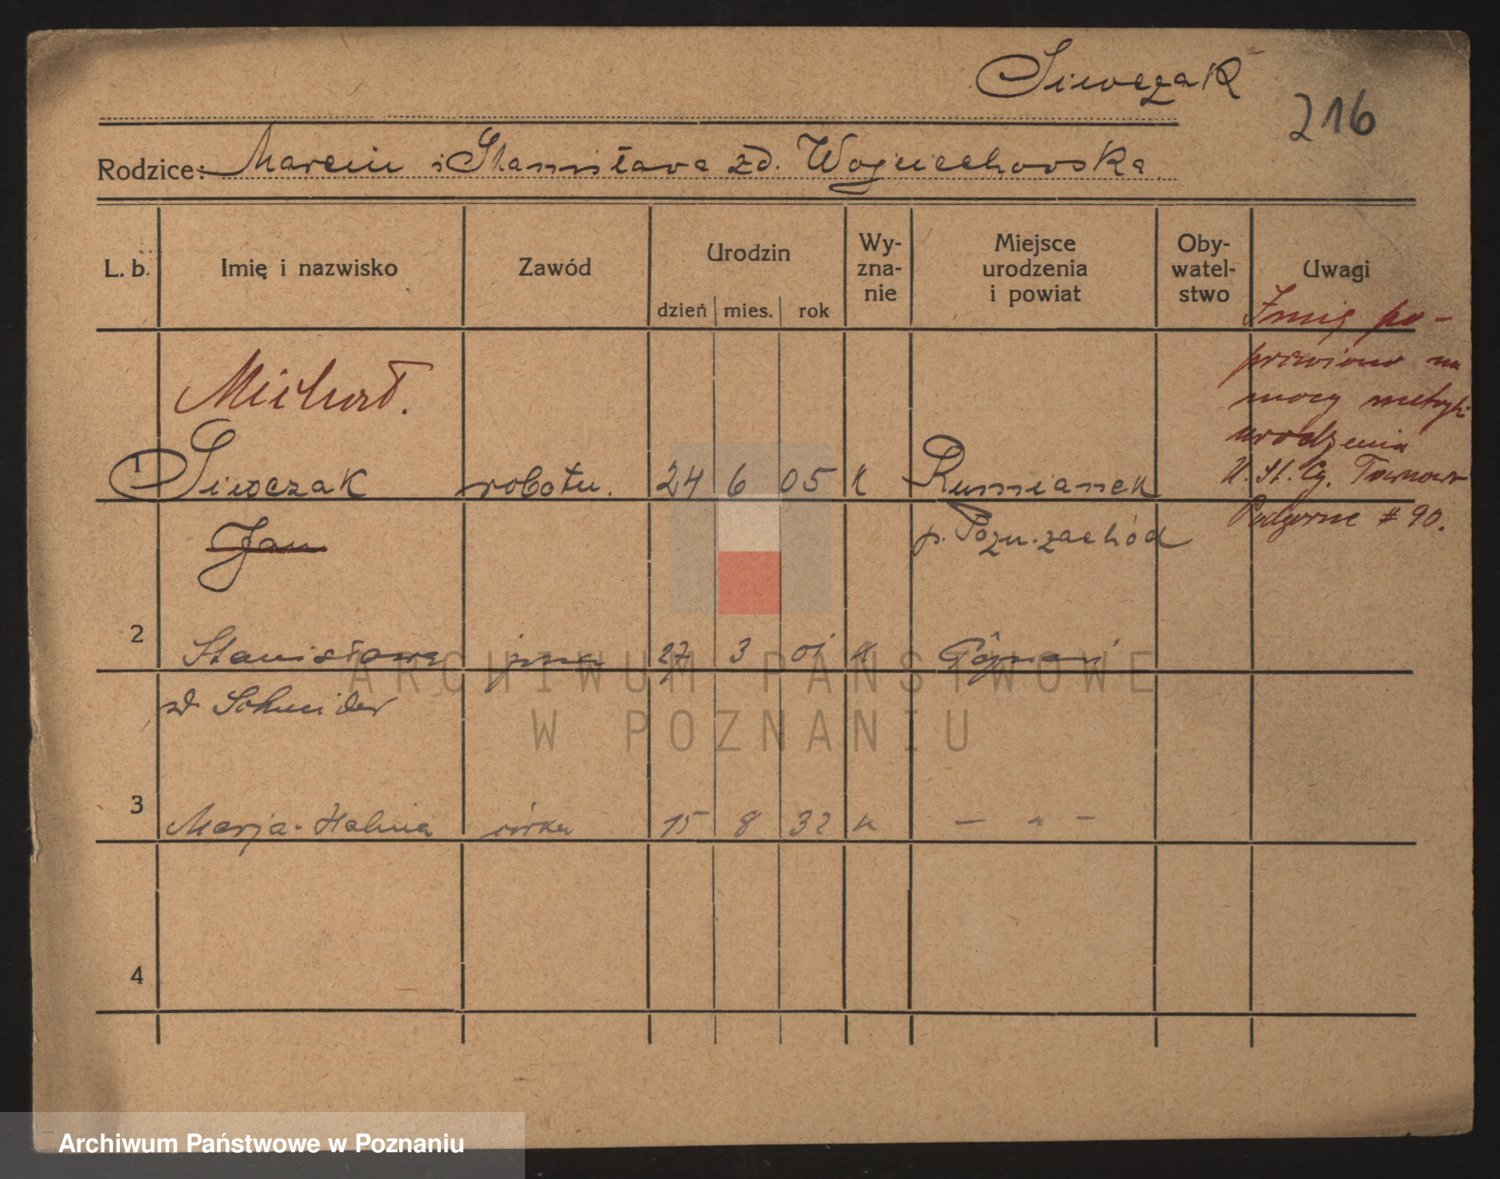 Siwczak
216
Rodzice: Marcin i Stanisława zd. Wojciechowska
L. b. Imię i nazwisko Zawód Urodzin Wy-zna-nie Miejsce urodzenia i powiat Oby-watel-stwo Uwagi
dzień mies. rok
Imię po-
prawiono na
mocy metryki
urodzenia
U. St. Cy. Tarnowo
Podgórne # 90.
Michał.
1 Siwczak robotn. 24 6 05 k Rumianek
Jan p. Pozn. zachód
2 Stanisława żona 27 3 01 k Poznań
zd Schneider
3 Marja-Halina córka 15 8 32 k — " —
4
ARCHIWUM PAŃSTWOWE
W POZNANIU
Archiwum Państwowe w Poznaniu